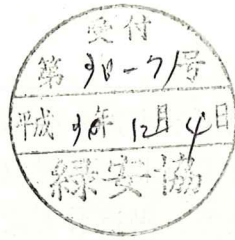 受付
第30-71号
平成30年12月4日
緑安協